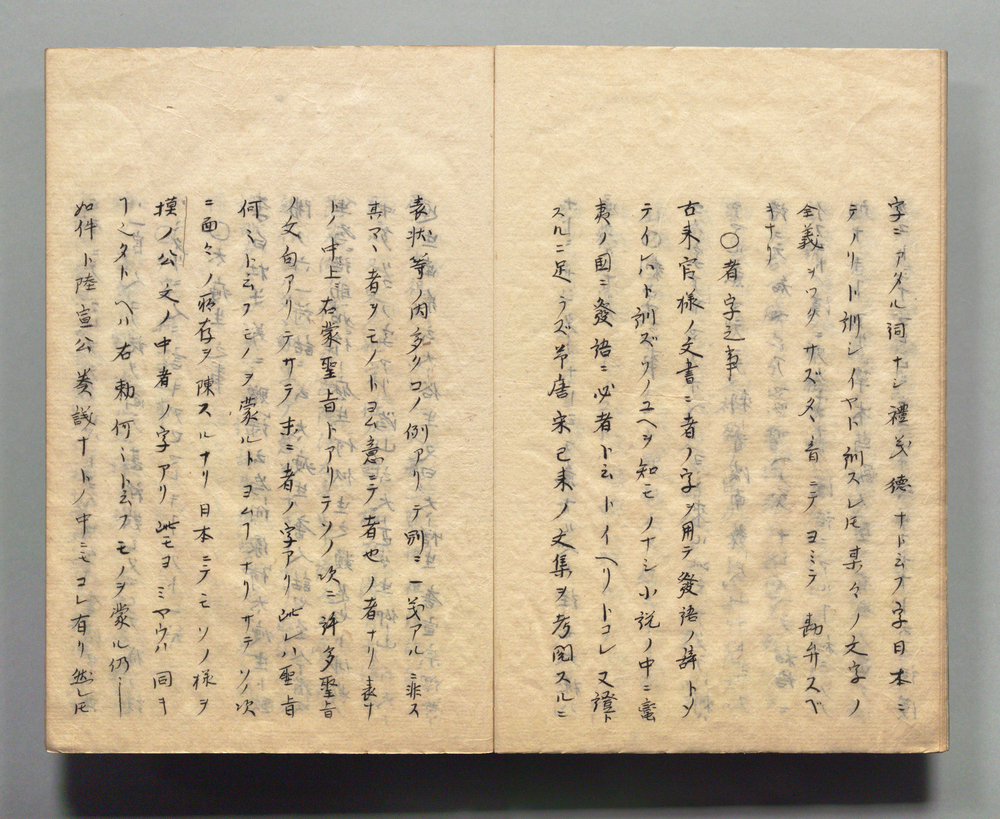 字ニアタル詞ナシ禮義德ナドヽ云フ字日本ニ
テノリト訓シイヤト訓スレ𪜈某々ノ文字ノ
全義ヲツクサズタヾ音ニテヨミテ勘弁スベ
キナリ
〇者字之事
古来官様ノ文書ニ者ノ字ヲ用テ發語ノ辞トメ
テイレハト訓ズソノユヘヲ知モノナシ小説ノ中ニ蛮
夷ノ國ニ發語ニ必者ト云トイヘリトコレ又證ト
スルニ足ラズ予唐宋已来ノ文集ヲ考閲スルニ
表状等ノ内多クコノ例アリテ別ニ一義アルニ非ス
其マヽ者ヲモノトヨム意ニテ者也ノ者ナリ表ナ
トノ中上ニ右蒙聖旨トアリテソノ次ニ許多聖旨
ノ文句アリテサテ末ニ者ノ字アリ此レハ聖旨
何〻ト云フモノヲ蒙ルトヨムヿナリサテソノ次
ニ面〻ノ所存ヲ陳スルナリ日本ニテモソノ様ヲ
摸ノ公文ノ中者ノ字アリ此モヨミヤウハ同キ
ヿナリタトヘハ右勅何〻ト云フモノヲ蒙ル仍〻
如件ト陸宣公奏議ナトノ中ニモコレ有リ然レ𪜈